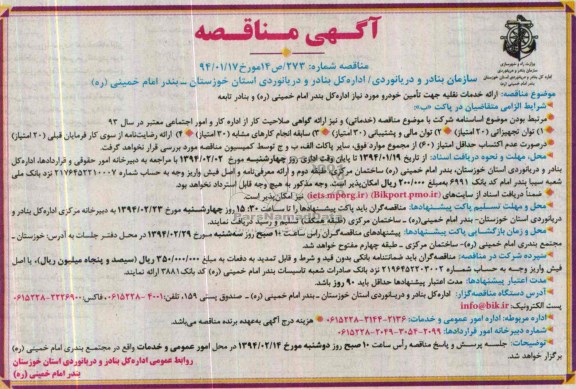 آگهی مناقصه
وزارت راه و شهرسازی
سازمان بنادر و دریانوردی
اداره کل بنادر و دریانوردی استان خوزستان
بندر امام خمینی (ره)
مناقصه شماره: ۲۷۳/ص۱۴ مورخ ۹۴/۰۱/۱۷
سازمان بنادر و دریانوردی/ اداره‌کل بنادر و دریانوردی استان خوزستان ـ بندر امام خمینی (ره)
موضوع مناقصه: ارائه خدمات نقلیه جهت تأمین خودرو مورد نیاز اداره‌کل بندر امام خمینی (ره) و بنادر تابعه
شرایط الزامی متقاضیان در پاکت «ب»:
مرتبط بودن موضوع اساسنامه شرکت با موضوع مناقصه (خدماتی) و نیز ارائه گواهی صلاحیت کار از اداره کار و امور اجتماعی معتبر در سال ۹۳
۱) توان تجهیزاتی (۲۰ امتیاز) ۲) توان مالی و پشتیبانی (۳۰ امتیاز) ۳) سابقه انجام کارهای مشابه (۳۰ امتیاز) ۴) ارائه رضایت‌نامه از سوی کار فرمایان قبلی (۲۰ امتیاز)
درصورت عدم اکتساب حداقل امتیاز (۶۰) از مجموع موارد فوق، سایر پاکات الف، ب و ج توسط کمیسیون مناقصه مورد بررسی قرار نخواهد گرفت.
محل، مهلت و نحوه دریافت اسناد: از تاریخ ۱۳۹۴/۰۱/۱۹ تا پایان وقت اداری روز چهارشنبه مورخ ۱۳۹۴/۰۲/۰۲ با مراجعه به دبیرخانه امور حقوقی و قراردادها، اداره‌کل
بنادر و دریانوردی استان خوزستان، بندر امام خمینی (ره) ساختمان مرکزی، طبقه دوم و ارائه معرفی‌نامه و اصل فیش واریز وجه به حساب شماره ۲۱۷۶۴۵۲۲۱۰۰۰۷ نزد بانک ملی
شعبه سیبا بندر امام کد بانک ۶۹۹۱ به‌مبلغ ۲۰۰/۰۰۰ ریال امکان‌پذیر است. وجه مذکور به هیچ وجه قابل استرداد نخواهد بود.
ضمناً دریافت اسناد از سایت‌های (Bikport.pmo.ir) (iets.mporg.ir) نیز امکان‌پذیر است.
محل و مهلت تسلیم پاکت پیشنهادها: مناقصه‌گران باید پاکت پیشنهادها را تا ساعت ۱۵:۳۰ روز چهارشنبه مورخ ۱۳۹۴/۰۲/۲۳ به دبیرخانه مرکزی اداره‌کل بنادر و
دریانوردی استان خوزستان- بندر امام خمینی(ره) - ساختمان مرکزی (طبقه همکف) تسلیم و رسید دریافت نمایند.
محل و زمان بازگشایی پاکت پیشنهادها: پیشنهادهای مناقصه‌گران راس ساعت ۱۰ صبح روز سه‌شنبه مورخ ۱۳۹۴/۰۲/۲۹ در محل دفتر جلسات به آدرس: خوزستان -
مجتمع بندری امام خمینی (ره) - ساختمان مرکزی - طبقه چهارم مفتوح خواهد شد.
سپرده شرکت در مناقصه: مناقصه‌گران باید ضمانتنامه بانکی بدون قید و شرط و قابل تمدید به دفعات به مبلغ ۳۵۰/۰۰۰/۰۰۰ ریال (سیصد و پنجاه میلیون ریال)، یا اصل
فیش واریز وجه به حساب شماره ۲۱۹۶۴۵۲۲۰۳۰۰۲ نزد بانک صادرات شعبه تاسیسات بندر امام خمینی (ره) کد بانک ۳۸۸۱ ارائه نمایند.
مدت اعتبار پیشنهادها: مدت اعتبار پیشنهادها حداقل باید ۹۰ روز باشد.
آدرس دستگاه مناقصه‌گزار: اداره‌کل بنادر و دریانوردی استان خوزستان ـ بندر امام خمینی (ره) ـ صندوق پستی ۱۵۹، تلفن: ۴۰۰۱-۰۶۱۵۲۲۸، فاکس: ۰۶۱۵۲۲۸-۲۲۲۶۹۰۰
پست الکترونیک: info@bik.ir
اداره مربوطه: اداره امور عمومی و خدمات: ۲۱۳۶-۲۱۴۴-۰۶۱۵۲۲۸ هزینه درج آگهی به‌عهده برنده مناقصه می‌باشد.
شماره دبیر خانه امور قراردادها: ۲۰۹۹-۳۰۵۴-۲۰۴۹-۰۶۱۵۲۲۸
توضیحات: جلسه پرسش و پاسخ مناقصه رأس ساعت ۱۰ صبح روز دوشنبه مورخ ۱۳۹۴/۰۲/۱۴ در محل امور عمومی و خدمات واقع در مجتمع بندری امام خمینی (ره)
برگزار خواهد شد.
روابط عمومی اداره‌کل بنادر و دریانوردی استان خوزستان
بندر امام خمینی (ره)